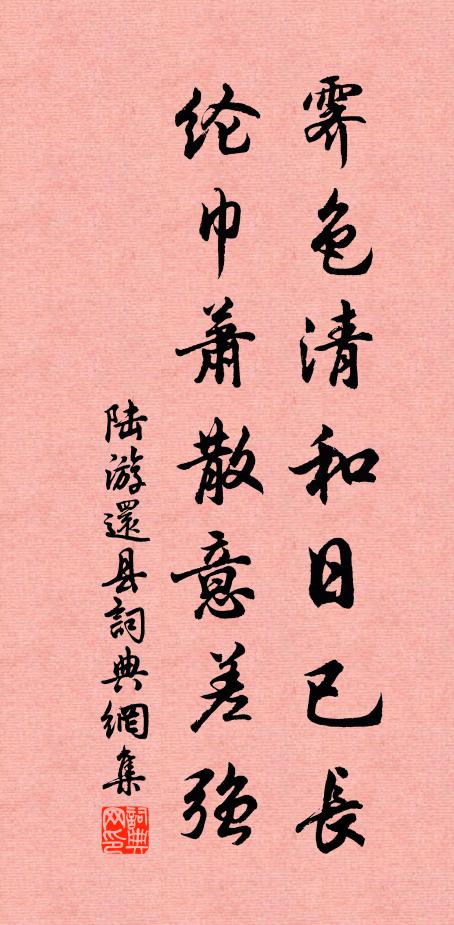 霽色清和日已長
纶巾蕭散意差强
陆游還县詞典網集
詞典网印